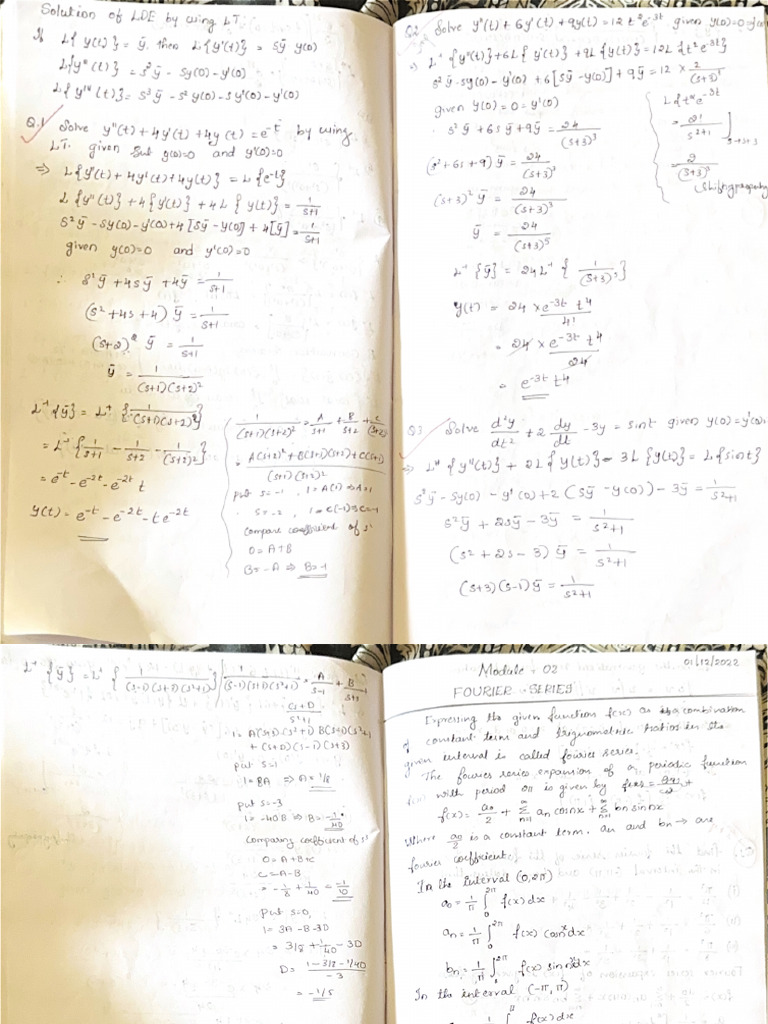 Solution of LDE by using LT.
If L{y(t)} = ȳ. then L{y'(t)} = sȳ y(0)
L{y''(t)} = s²ȳ - sy(0) - y'(0)
L{y'''(t)} = s³ȳ - s²y(0) - sy'(0) - y'(0)
Q.1 Solve y''(t) + 4y'(t) + 4y(t) = e^-t by using
LT. given y(0)=0 and y'(0)=0
⇒ L{y''(t) + 4y'(t) + 4y(t)} = L{e^-t}
L{y''(t)} + 4{y'(t)} + 4L{y(t)} = 1/(s+1)
s²ȳ - sy(0) - y'(0) + 4[sȳ - y(0)] + 4[ȳ] = 1/(s+1)
given y(0)=0 and y'(0)=0
∴ s²ȳ + 4sȳ + 4ȳ = 1/(s+1)
(s² + 4s + 4) ȳ = 1/(s+1)
(s+2)² ȳ = 1/(s+1)
ȳ = 1/((s+1)(s+2)²)
L⁻¹{ȳ} = L⁻¹{1/((s+1)(s+2)²)}
= L⁻¹{1/(s+1) - 1/(s+2) - 1/(s+2)²}
= e^-t - e^-2t - e^-2t t
y(t) = e^-t - e^-2t - te^-2t
1/((s+1)(s+2)²) = A/(s+1) + B/(s+2) + C/(s+2)²
= (A(s+2)² + B(s+1)(s+2) + C(s+1))/((s+1)(s+2)²)
put s=-1, 1=A(1) ⇒ A=1
s=-2, 1=C(-1) ⇒ C=-1
compare coefficient of s²
0 = A+B
B = -A ⇒ B=-1
Q2 Solve y''(t) + 6y'(t) + 9y(t) = 12t²e^-3t given y(0)=0=y'(0)
⇒ L{y''(t)} + 6L{y'(t)} + 9L{y(t)} = 12L{t²e^-3t}
s²ȳ - sy(0) - y'(0) + 6[sȳ - y(0)] + 9ȳ = 12 × 2/(s+3)³
given y(0)=0=y'(0)
s²ȳ + 6sȳ + 9ȳ = 24/(s+3)³
(s² + 6s + 9) ȳ = 24/(s+3)³
(s+3)² ȳ = 24/(s+3)³
ȳ = 24/(s+3)⁵
L⁻¹{ȳ} = 24L⁻¹{1/(s+3)⁵}
y(t) = 24 × e^-3t t⁴/4!
= 24 × e^-3t t⁴/24
= e^-3t t⁴
= 2!/s²⁺¹] s→s+3
= 2/(s+3)³
Shifting property
Q3 Solve d²y/dt² + 2 dy/dt - 3y = sint given y(0)=y'(0)=
⇒ L{y''(t)} + 2L{y'(t)} - 3L{y(t)} = L{sint}
s²ȳ - sy(0) - y'(0) + 2(sȳ - y(0)) - 3ȳ = 1/(s²+1)
s²ȳ + 2sȳ - 3ȳ = 1/(s²+1)
(s² + 2s - 3) ȳ = 1/(s²+1)
(s+3)(s-1)ȳ = 1/(s²+1)
L⁻¹{ȳ} = L⁻¹{1/((s-1)(s+3)(s²+1))}
1/((s-1)(s+3)(s²+1)) = A/(s-1) + B/(s+3) +
(Cs+D)/(s²+1)
1 = A(s+3)(s²+1) B(s-1)(s²+1
+ (Cs+D)(s-1)(s+3)
put s=1
1 = 8A ⇒ A=1/8
put s=-3
1 = -40B ⇒ B=-1/40
Comparing coefficient of s³
0 = A+B+C
C = -A-B
= -1/8 + 1/40 = -1/10
Put s=0,
1 = 3A - B - 3D
= 3/8 + 1/40 - 3D
D = (1-3/8-1/40)/-3
= -1/5
01/12/2022
Module - 02
FOURIER SERIES
Expressing the given function f(x) as a combination
of constant term and trigonometric ratios in the
given interval is called fourier series.
The fourier series expansion of a periodic function
f(x) with period 2π is given by
f(x) = a₀/2 + Σ an cosnx + Σ bn sinnx
where a₀/2 is a constant term. an and bn → are
fourier coefficient.
In the interval (0, 2π)
a₀ = 1/π ∫₀^2π f(x) dx
an = 1/π ∫₀^2π f(x) cosnx dx
bn = 1/π ∫₀^2π f(x) sinnx dx
In the interval (-π, π)
f(x) dx